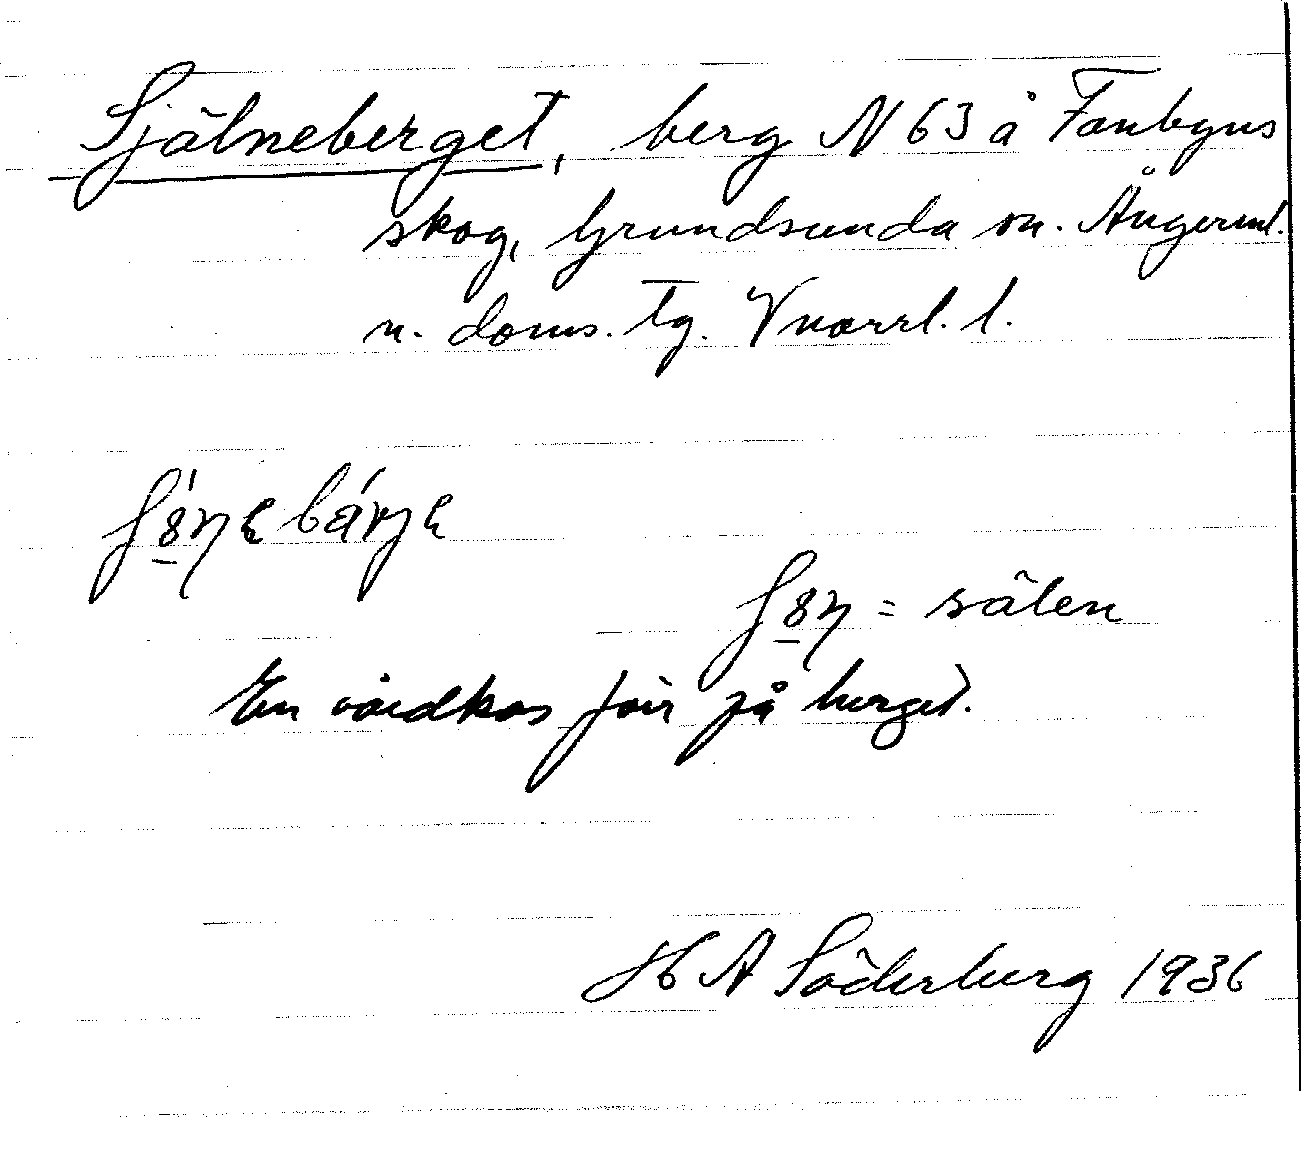 Själneberget, berg N 63 å Fanbyns
skog, Grundsunda sn. Ångerml.
n. doms. tg. Vnorrl. l.
= sälen
En vårdkas förr på berget.
H A Söderberg 1936